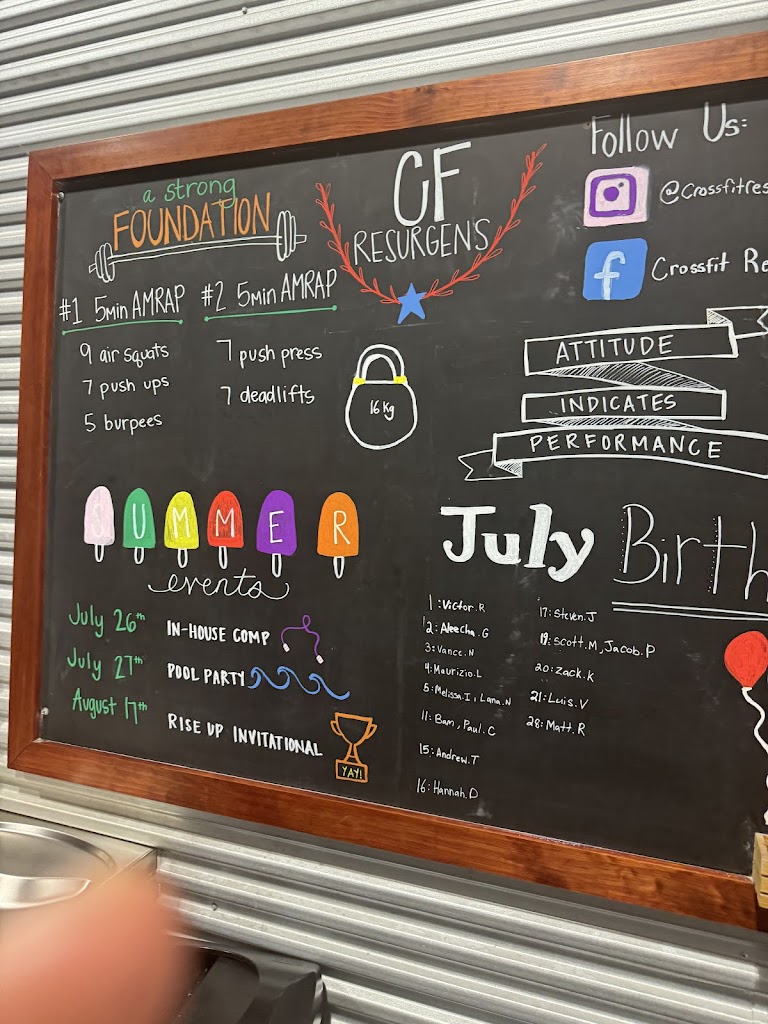 a strong
FOUNDATION
#1 5min AMRAP
9 air squats
7 push ups
5 burpees
#2 5min AMRAP
7 push press
7 deadlifts
CF
RESURGENS
16 Kg
Follow Us:
@Crossfitres
Crossfit Re
ATTITUDE
INDICATES
PERFORMANCE
SUMMER
events
July 26th IN-HOUSE COMP
July 27th POOL PARTY
August 17th RISE UP INVITATIONAL
YAY!
July Birth
1: Victor.R
2: Aleecha.G
3: Vance.N
4: Maurizio.L
5: Melissa.I, Lana.N
11: Bam, Paul.C
15: Andrew.T
16: Hannah.D
17: Steven.J
19: Scott.M, Jacob.P
20: Zack.K
21: Luis.V
28: Matt.R